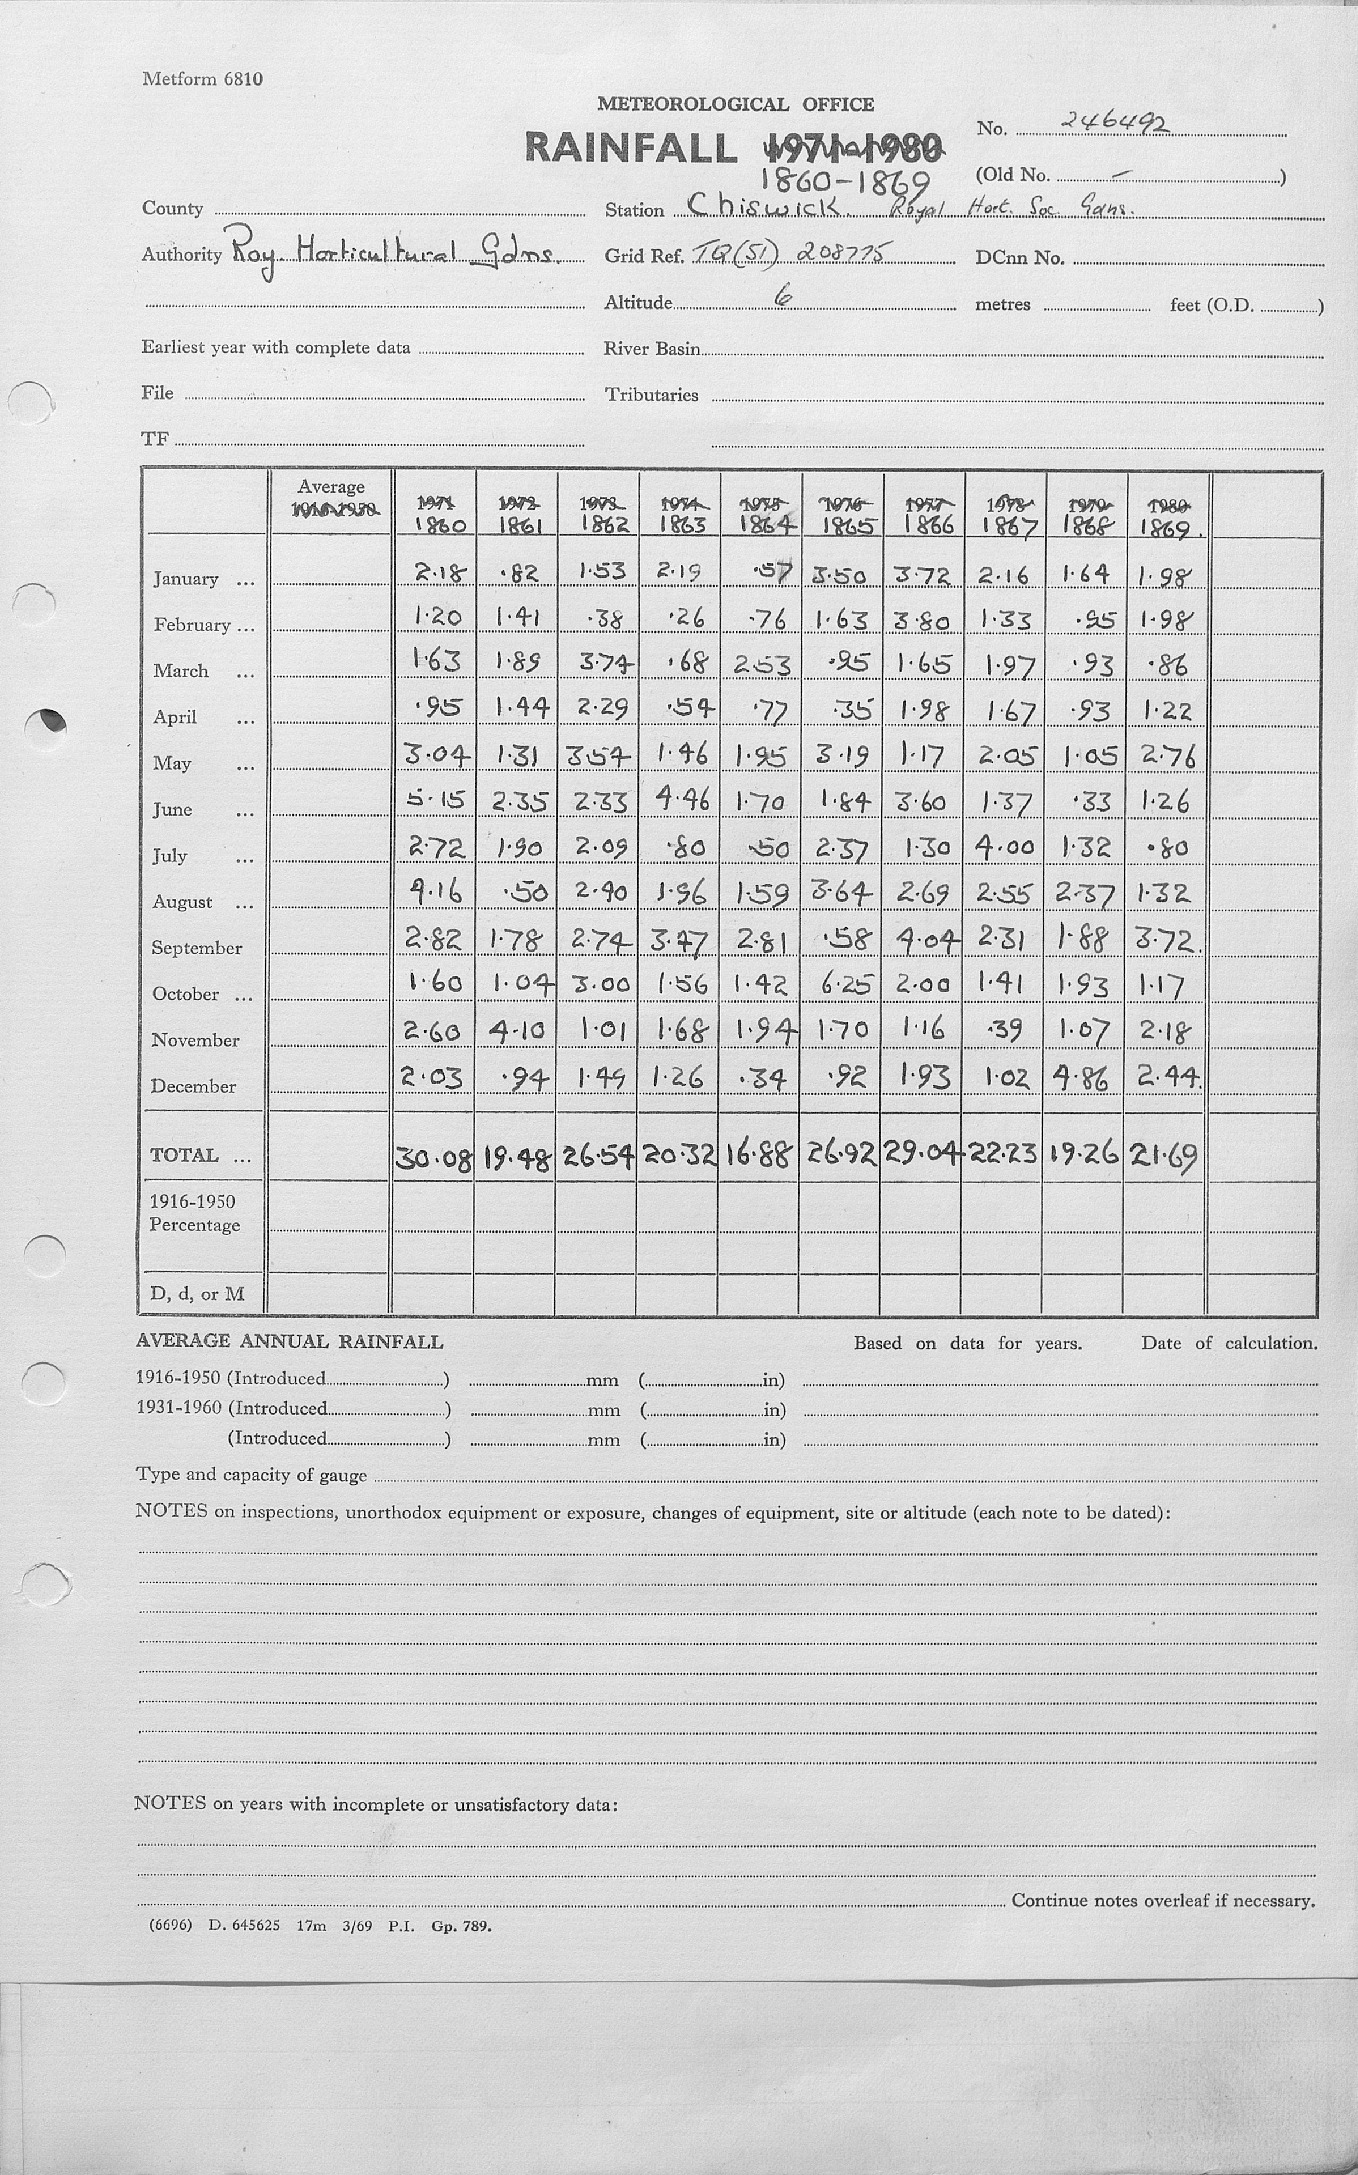 Metform 6810
METEOROLOGICAL OFFICE
RAINFALL 1971-1980
1860-1869
No. 246492
(Old No. – )
County
Station Chiswick. Royal Hort. Soc. Gdns.
Authority Roy. Horticultural Gdns.
Grid Ref. TQ(51) 208775
DCnn No.
Altitude 6 metres feet (O.D. )
Earliest year with complete data
River Basin
File
Tributaries
TF
Average 1916-1950 1971 1972 1973 1974 1975 1976 1977 1978 1979 1980
1860 1861 1862 1863 1864 1865 1866 1867 1868 1869
January ... 2·18 ·82 1·53 2·19 ·57 3·50 3·72 2·16 1·64 1·98
February ... 1·20 1·41 ·38 ·26 ·76 1·63 3·80 1·33 ·95 1·98
March ... 1·63 1·89 3·74 ·68 2·53 ·95 1·65 1·97 ·93 ·86
April ... ·95 1·44 2·29 ·54 ·77 ·35 1·98 1·67 ·93 1·22
May ... 3·04 1·31 3·54 1·46 1·95 3·19 1·17 2·05 1·05 2·76
June ... 5·15 2·35 2·33 4·46 1·70 1·84 3·60 1·37 ·33 1·26
July ... 2·72 1·90 2·09 ·80 ·50 2·37 1·30 4·00 1·32 ·80
August ... 4·16 ·50 2·40 1·96 1·59 3·64 2·69 2·55 2·37 1·32
September 2·82 1·78 2·74 3·47 2·81 ·58 4·04 2·31 1·88 3·72
October ... 1·60 1·04 3·00 1·56 1·42 6·25 2·00 1·41 1·93 1·17
November 2·60 4·10 1·01 1·68 1·94 1·70 1·16 ·39 1·07 2·18
December 2·03 ·94 1·49 1·26 ·34 ·92 1·93 1·02 4·86 2·44
TOTAL ... 30·08 19·48 26·54 20·32 16·88 26·92 29·04 22·23 19·26 21·69
1916-1950
Percentage
D, d, or M
AVERAGE ANNUAL RAINFALL Based on data for years. Date of calculation.
1916-1950 (Introduced ) mm ( in)
1931-1960 (Introduced ) mm ( in)
(Introduced ) mm ( in)
Type and capacity of gauge
NOTES on inspections, unorthodox equipment or exposure, changes of equipment, site or altitude (each note to be dated):
NOTES on years with incomplete or unsatisfactory data:
Continue notes overleaf if necessary.
(6696) D. 645625 17m 3/69 P.I. Gp. 789.